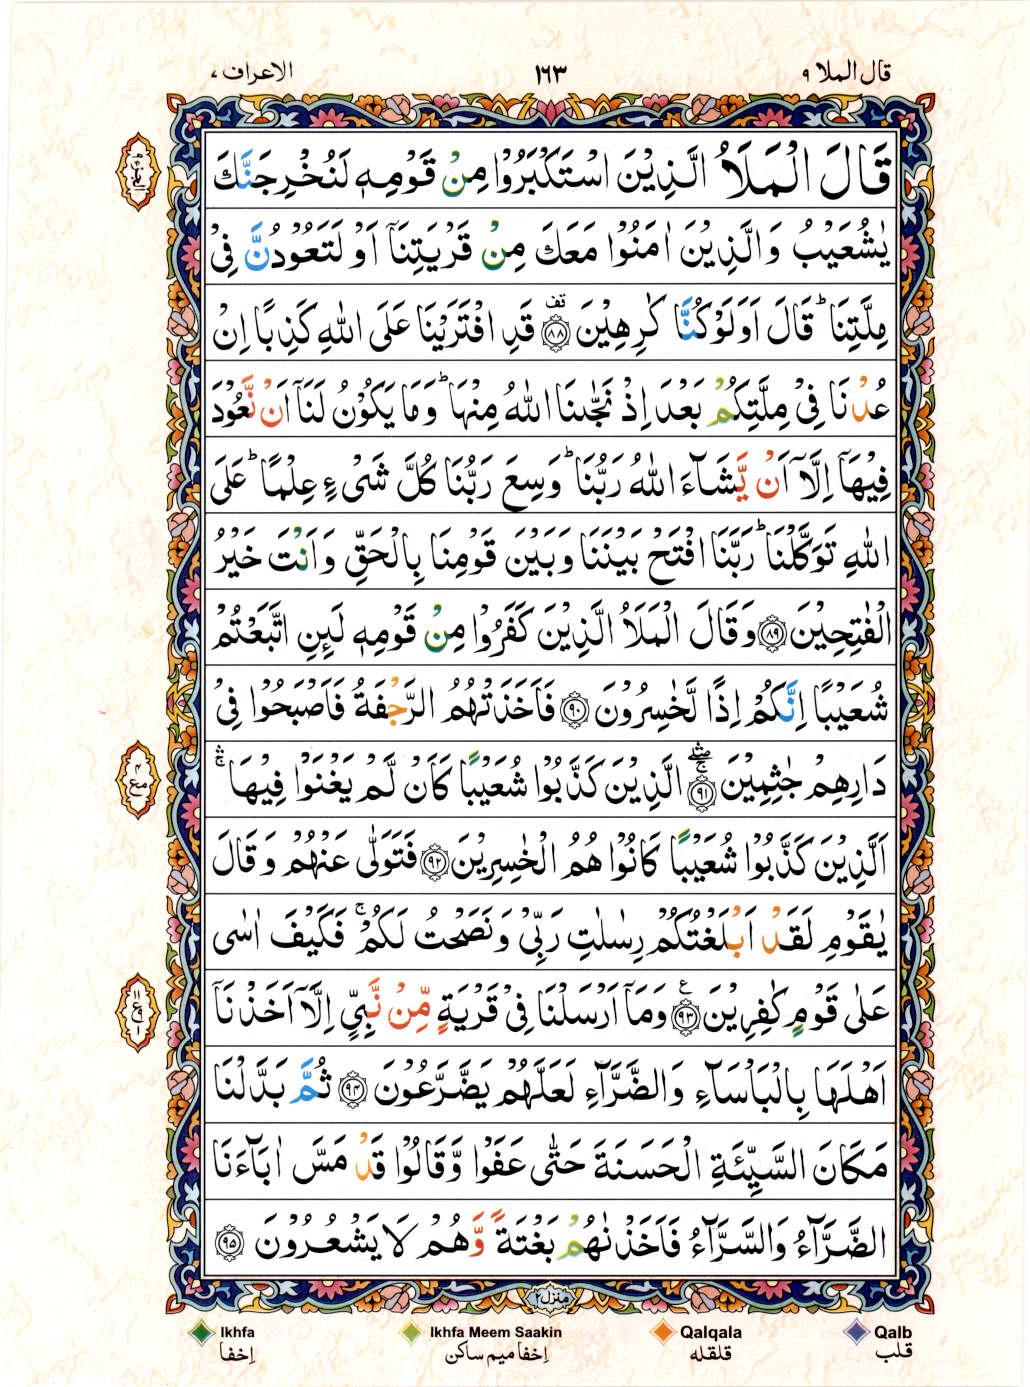 قال الملا ۹
۱۶۳
الاعراف ۷
قَالَ الْمَلَاُ الَّذِیْنَ اسْتَكْبَرُوْا مِنْ قَوْمِهٖ لَنُخْرِجَنَّكَ
یٰشُعَیْبُ وَالَّذِیْنَ اٰمَنُوْا مَعَكَ مِنْ قَرْیَتِنَاۤ اَوْ لَتَعُوْدُنَّ فِیْ
مِلَّتِنَا ؕ قَالَ اَوَلَوْ كُنَّا كٰرِهِیْنَ ﴿۸۸﴾ۚقف قَدِ افْتَرَیْنَا عَلَی اللّٰهِ كَذِبًا اِنْ
عُدْنَا فِیْ مِلَّتِكُمْ بَعْدَ اِذْ نَجّٰىنَا اللّٰهُ مِنْهَا ؕ وَمَا یَكُوْنُ لَنَاۤ اَنْ نَّعُوْدَ
فِیْهَاۤ اِلَّاۤ اَنْ یَّشَآءَ اللّٰهُ رَبُّنَا ؕ وَسِعَ رَبُّنَا كُلَّ شَیْءٍ عِلْمًا ؕ عَلَی
اللّٰهِ تَوَكَّلْنَا ؕ رَبَّنَا افْتَحْ بَیْنَنَا وَبَیْنَ قَوْمِنَا بِالْحَقِّ وَاَنْتَ خَیْرُ
الْفٰتِحِیْنَ ﴿۸۹﴾ وَقَالَ الْمَلَاُ الَّذِیْنَ كَفَرُوْا مِنْ قَوْمِهٖ لَىِٕنِ اتَّبَعْتُمْ
شُعَیْبًا اِنَّكُمْ اِذًا لَّخٰسِرُوْنَ ﴿۹۰﴾ فَاَخَذَتْهُمُ الرَّجْفَةُ فَاَصْبَحُوْا فِیْ
دَارِهِمْ جٰثِمِیْنَ ﴿۹۱﴾ۚۖۛ الَّذِیْنَ كَذَّبُوْا شُعَیْبًا كَاَنْ لَّمْ یَغْنَوْا فِیْهَا ۚۛ
اَلَّذِیْنَ كَذَّبُوْا شُعَیْبًا كَانُوْا هُمُ الْخٰسِرِیْنَ ﴿۹۲﴾ فَتَوَلّٰی عَنْهُمْ وَقَالَ
یٰقَوْمِ لَقَدْ اَبْلَغْتُكُمْ رِسٰلٰتِ رَبِّیْ وَنَصَحْتُ لَكُمْ ۚ فَكَیْفَ اٰسٰی
عَلٰی قَوْمٍ كٰفِرِیْنَ ﴿۹۳﴾ع وَمَاۤ اَرْسَلْنَا فِیْ قَرْیَةٍ مِّنْ نَّبِیٍّ اِلَّاۤ اَخَذْنَاۤ
اَهْلَهَا بِالْبَاْسَآءِ وَالضَّرَّآءِ لَعَلَّهُمْ یَضَّرَّعُوْنَ ﴿۹۴﴾ ثُمَّ بَدَّلْنَا
مَكَانَ السَّیِّئَةِ الْحَسَنَةَ حَتّٰی عَفَوْا وَّقَالُوْا قَدْ مَسَّ اٰبَآءَنَا
الضَّرَّآءُ وَالسَّرَّآءُ فَاَخَذْنٰهُمْ بَغْتَةً وَّهُمْ لَا یَشْعُرُوْنَ ﴿۹۵﴾
منزل ۲
Ikhfa
Ikhfa Meem Saakin
Qalqala
Qalb
اِخفا
اِخفا میم ساکن
قلقله
قلب